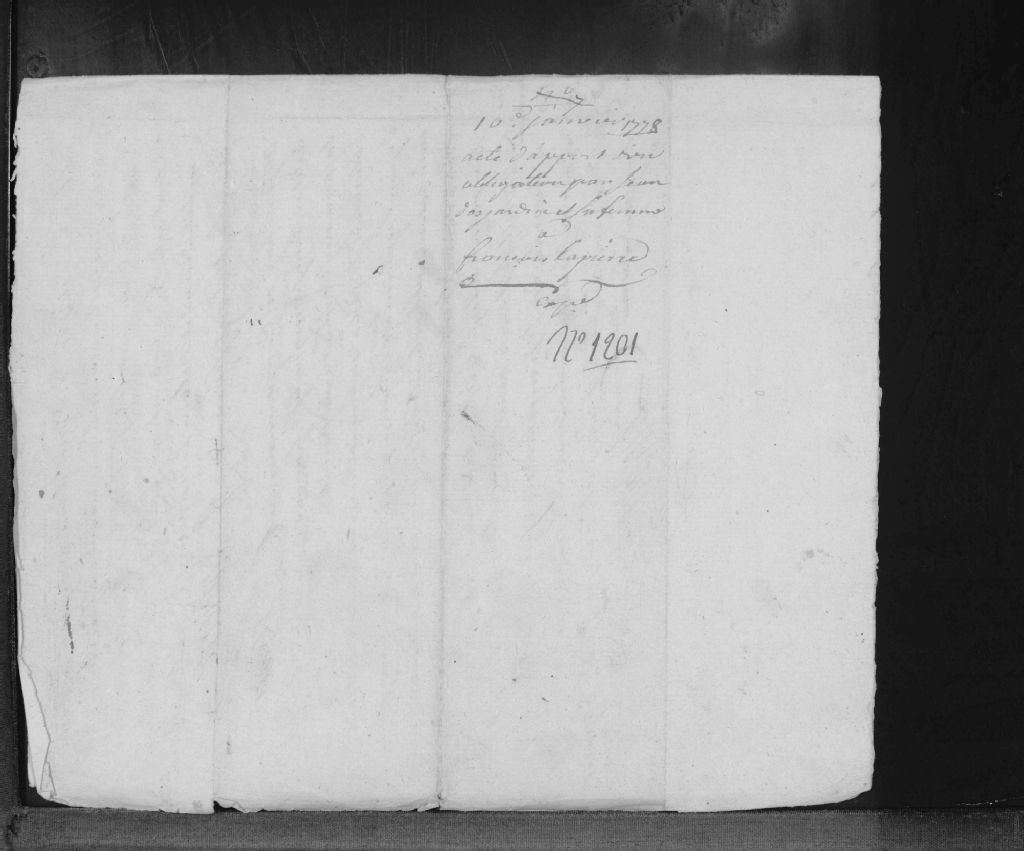 10e janvier 1778
acte d'apport d'une
obligation par Jean
desjardin et sa femme
a
francois Lapierre
Expé
No 1201